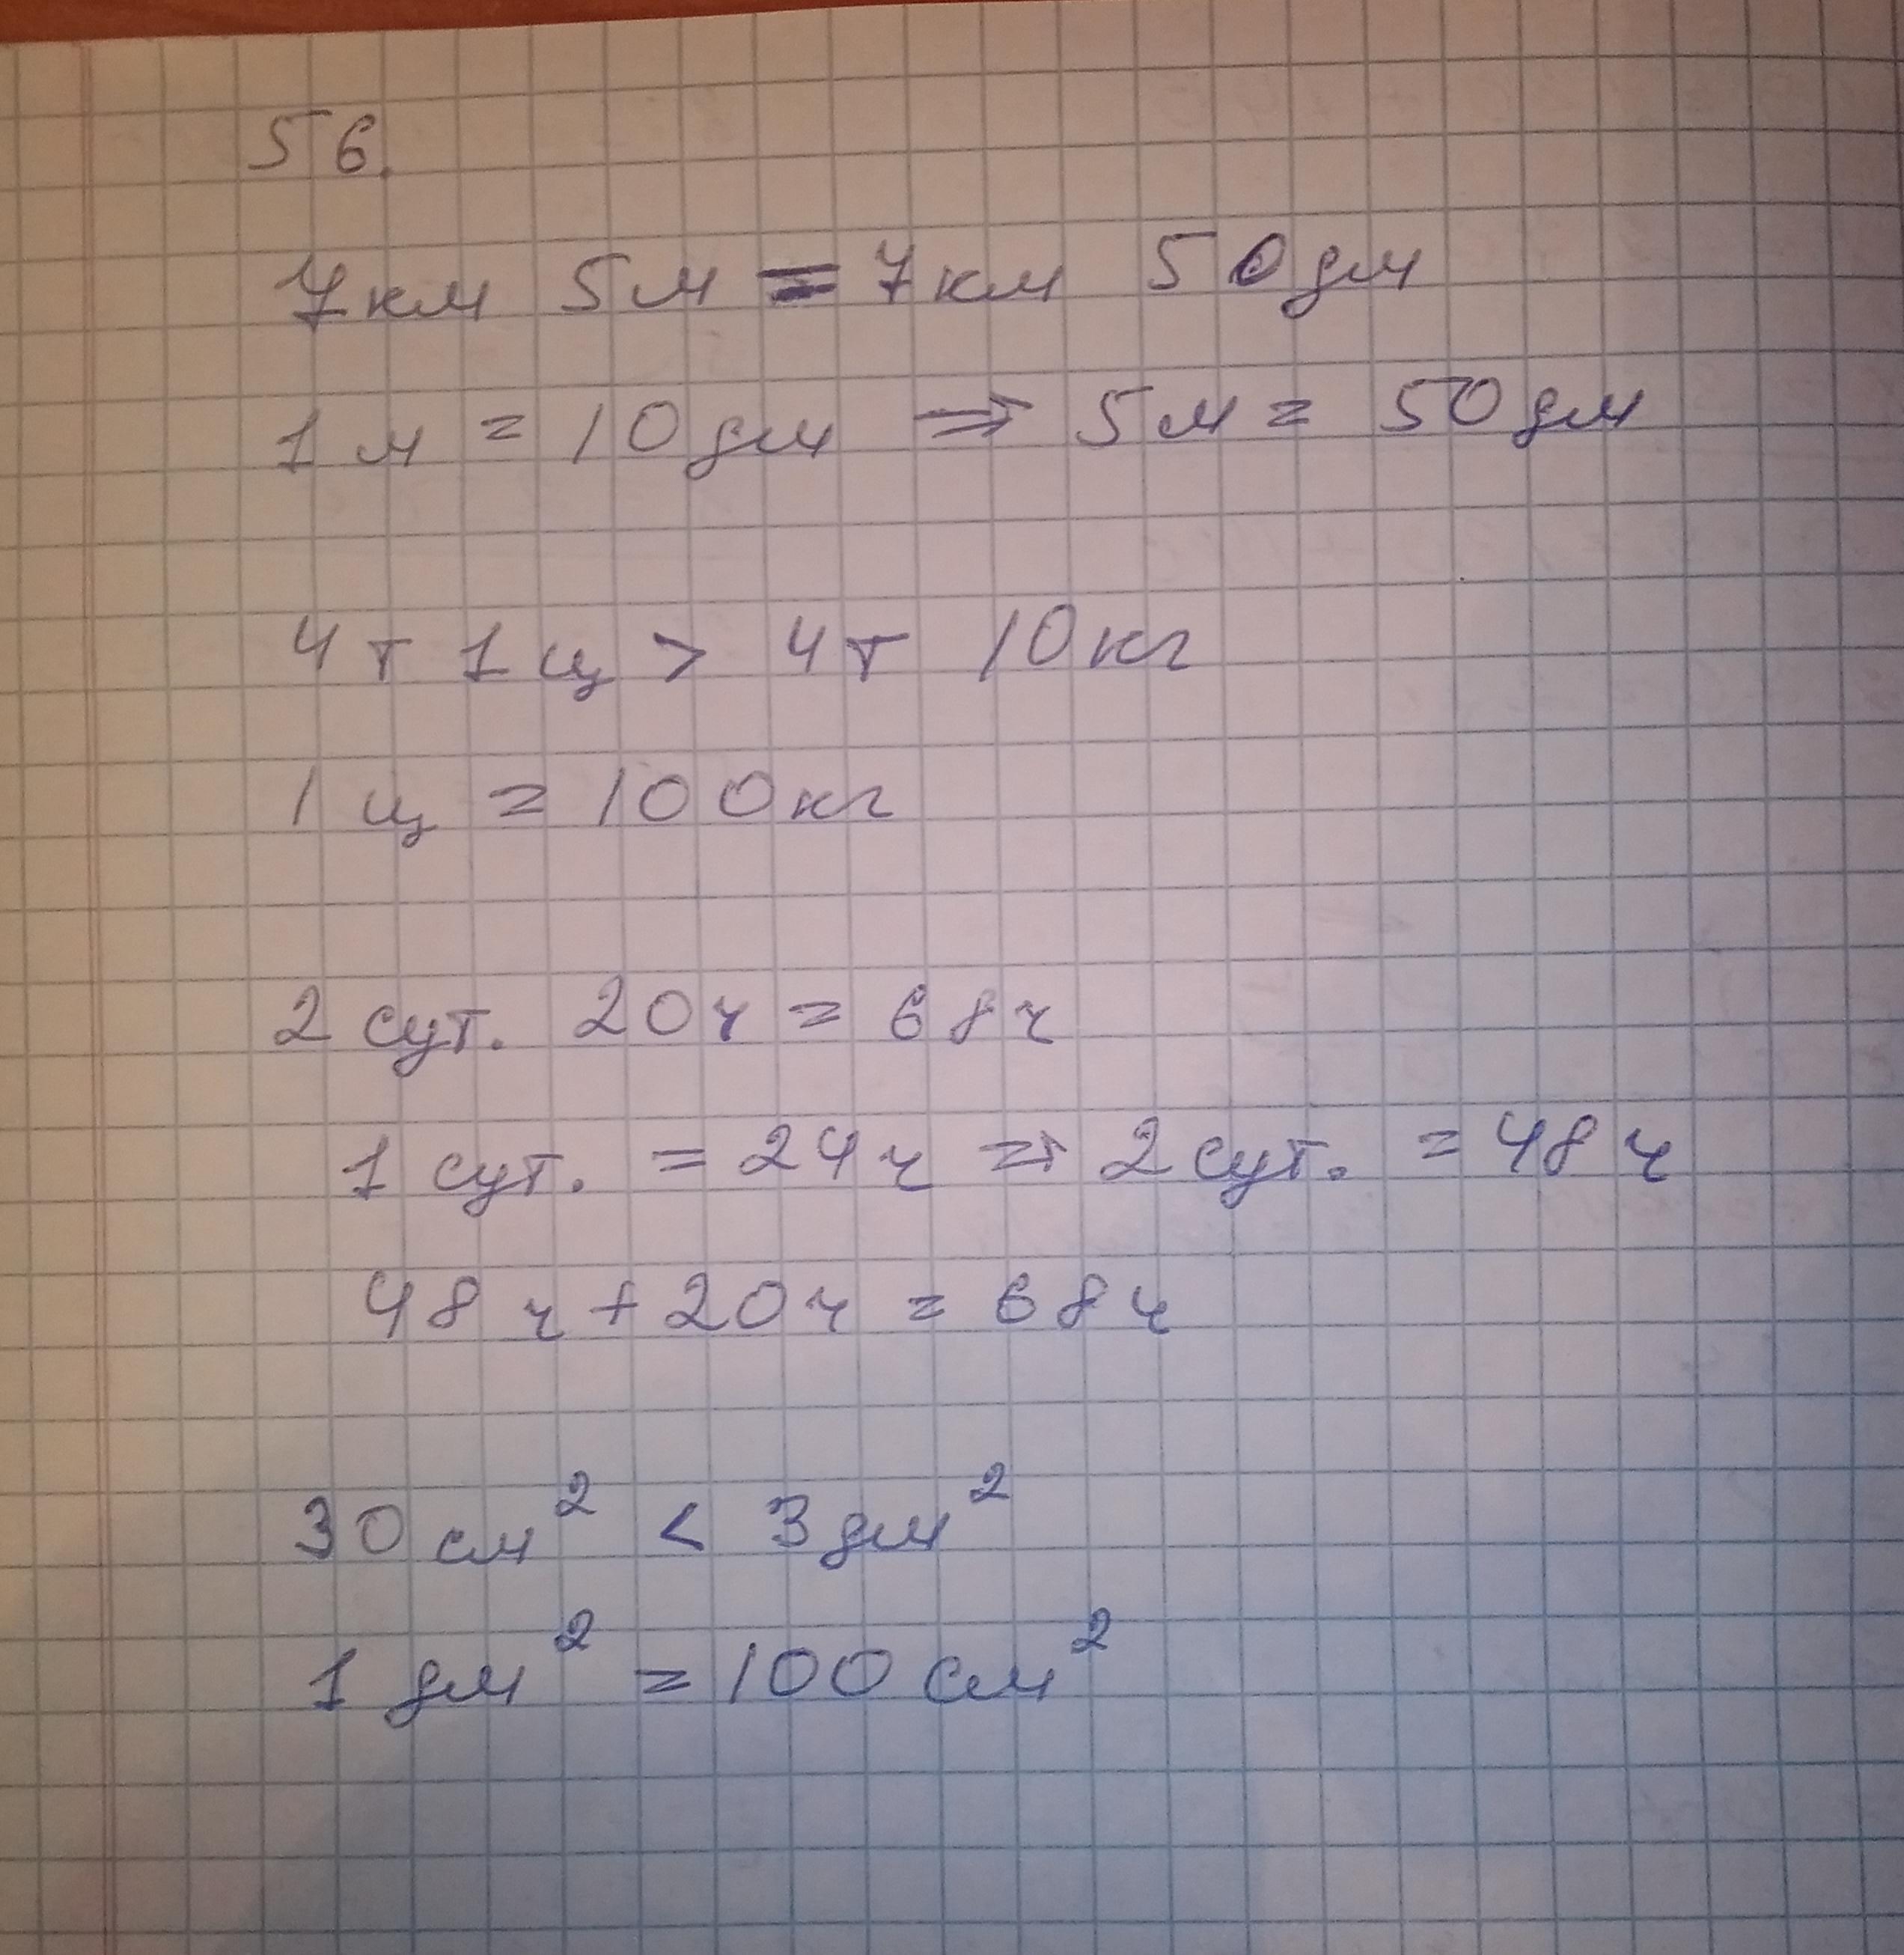 56.
7 км 5 м = 7 км 50 дм
1 м = 10 дм ⇒ 5 м = 50 дм
4 т 1 ц > 4 т 10 кг
1 ц = 100 кг
2 сут. 20 ч = 68 ч
1 сут. = 24 ч ⇒ 2 сут. = 48 ч
48 ч + 20 ч = 68 ч
30 см² < 3 дм²
1 дм² = 100 см²